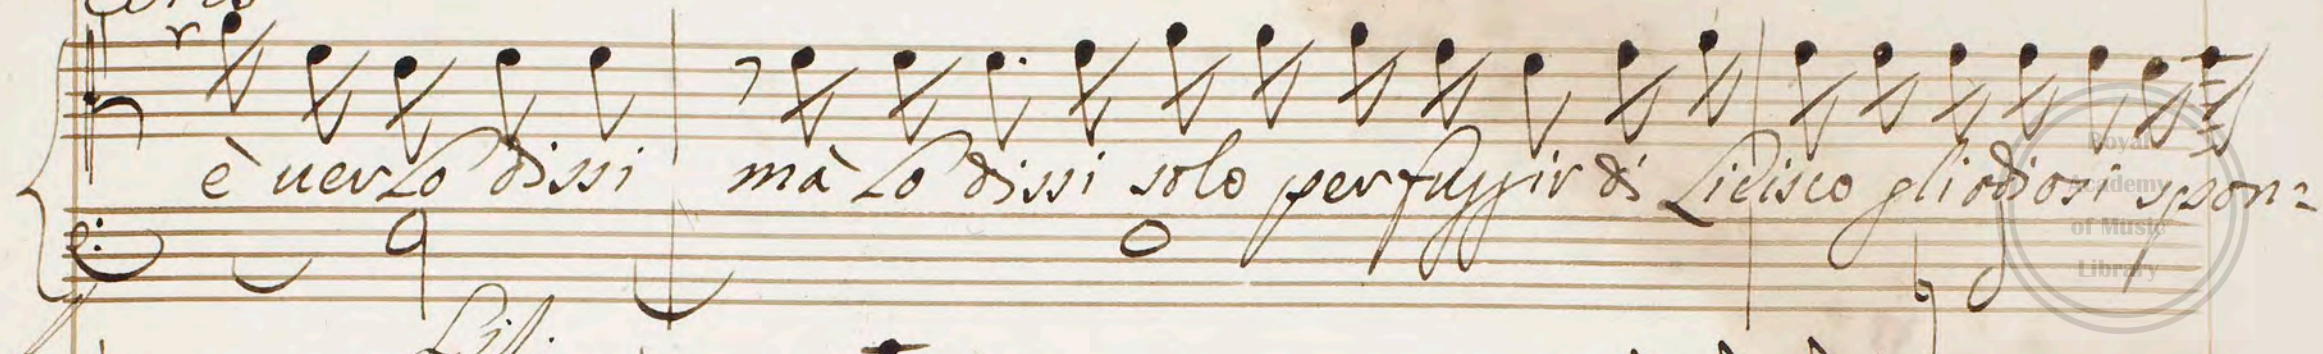 è uer Lo dissi mà Lo dissi solo per fuggir di Lidisco gli odiosi spon=
Royal
Academy
of Music
Library